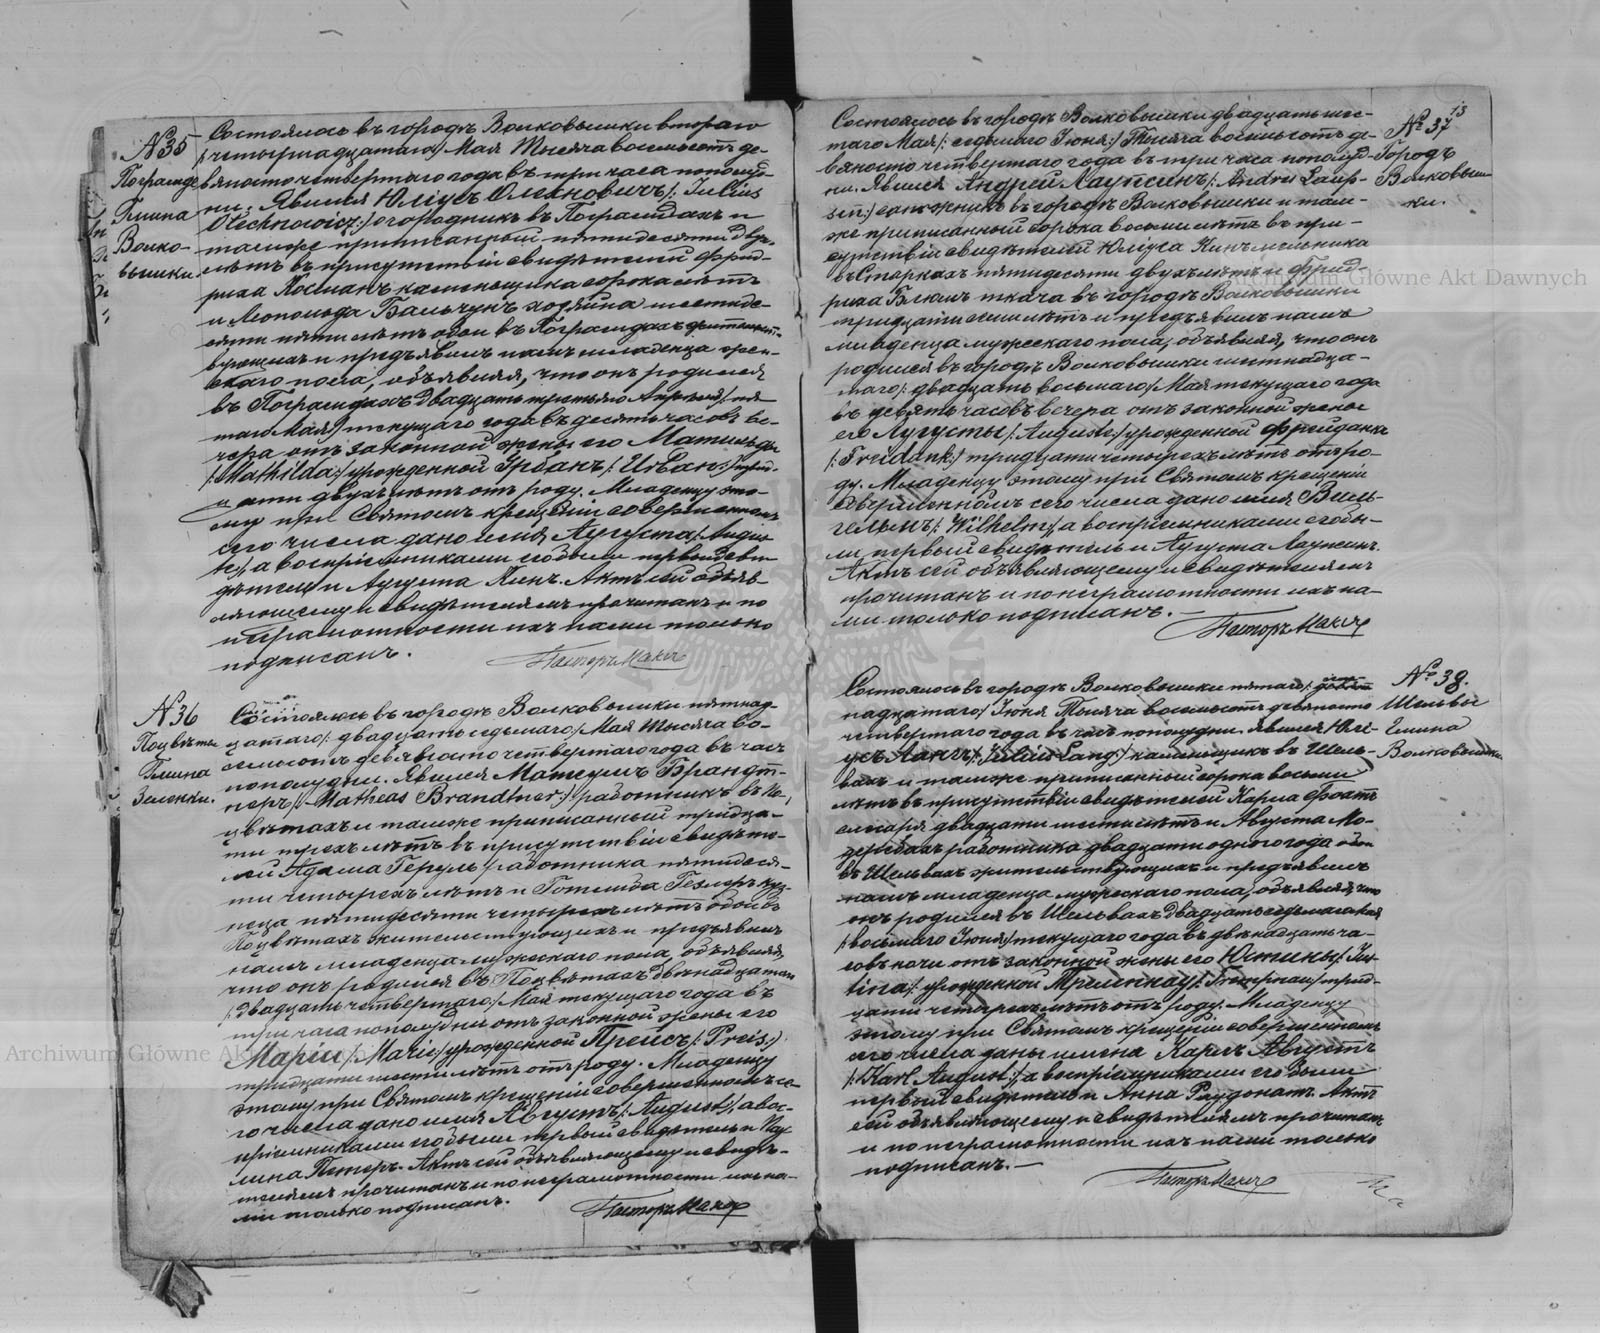 №35
Пограмде
Гмина
Волко-
вышки.
Состоялось въ городѣ Волковышки втораго
/:четырнадцатаго:/ Мая Тысяча восемьсотъ де-
вяносто четвертаго года въ три часа пополуд-
ни. Явился Юліусъ Олехновичъ /: Julius
Olechnowicz:/ огородникъ въ Пограмдахъ и
тамже приписанный пятидесяти двухъ
лѣтъ въ присутствіи свидѣтелей Фрид-
риха Лосманъ каменьщика сорока лѣтъ
и Леопольда Бальчунъ хозяина шестиде-
сяти пяти лѣтъ обои въ Пограмдахъ жительст-
вующихъ и предъявилъ намъ младенца жен-
скаго пола, объявляя, что онъ родился
въ Пограмдахъ двадцать третьяго Апрѣля /: пя-
таго Мая:/ текущаго года въ десять часовъ ве-
чера отъ законной жены его Матильды
/:Mathilda:/ урожденной Урбанъ /: Urban:/ трид-
цати двухъ лѣтъ отъ роду. Младенцу это-
му при Святомъ крещеніи совершенномъ
сего числа дано имя Августа /: Augus-
te:/, а воспріемниками его были первый сви-
дѣтель и Августа Кинъ. Актъ сей объяв-
ляющему и свидѣтелямъ прочитанъ и по
неграмотности ихъ нами только
подписанъ.
Пасторъ Махъ
№36
Поцвѣты
Гмина
Зеленки.
Состоялось въ городѣ Волковышки пятнад-
цатаго /: двадцать седьмаго:/ Мая Тысяча во-
семьсотъ девяносто четвертаго года въ часъ
пополудни. Явился Матеушъ Брандт-
неръ /: Matheas Brandtner:/ работникъ въ По-
цвѣтахъ и тамже приписанный тридца-
ти трехъ лѣтъ въ присутствіи свидѣте-
лей Адама Геруль работника пятидеся-
ти четырехъ лѣтъ и Готлиба Гезлеръ куз-
неца пятидесяти четырехъ лѣтъ обои въ
Поцвѣтахъ жительствующихъ и предъявилъ
намъ младенца мужескаго пола, объявляя,
что онъ родился въ Поцвѣтахъ двѣнадцатаго
/: двадцать четвертаго:/ Мая текущаго года въ
три часа пополудни отъ законной жены его
Маріи /: Marie:/ урожденной Прейсъ /: Preis:/
тридцати шести лѣтъ отъ роду. Младенцу
этому при Святомъ крещеніи совершенномъ се-
го числа дано имя Августъ /: August:/, а вос-
пріемниками его были первый свидѣтель и Пау-
лина Петеръ. Актъ сей объявляющему и свидѣ-
телямъ прочитанъ и по неграмотности ихъ на-
ми только подписанъ.
Пасторъ Махъ
13
№ 37
Городъ
Волковыш-
ки.
Состоялось въ городѣ Волковышки двадцать шес-
таго Мая /: седьмаго Іюня:/ Тысяча восемьсотъ де-
вяносто четвертаго года въ три часа пополуд-
ни. Явился Андрей Лаупсинъ /: Andres Laup-
sin:/ сапожникъ въ городѣ Волковышки и там-
же приписанный сорока восьми лѣтъ въ при-
сутствіи свидѣтелей Юліуса Кинъ мельника
въ Старкахъ пятидесяти двухъ лѣтъ и Фрид-
риха Блюмъ ткача въ городѣ Волковышки
тридцати семи лѣтъ и предъявилъ намъ
младенца мужескаго пола, объявляя, что онъ
родился въ городѣ Волковышки шестнадца-
таго /: двадцать восьмаго:/ Мая текущаго года
въ девять часовъ вечера отъ законной жены
его Аугусты /: Auguste:/ урожденной Фрейданкъ
/: Freidank:/ тридцати четырехъ лѣтъ отъ ро-
ду. Младенцу этому при Святомъ крещеніи
совершенномъ сего числа дано имя Виль-
гельмъ /: Wilhelm:/, а воспріемниками его бы-
ли первый свидѣтель и Аугуста Лаупсинъ.
Актъ сей объявляющему и свидѣтелямъ
прочитанъ и по неграмотности ихъ на-
ми только подписанъ.—
Пасторъ Махъ
№ 38.
Шельвы
Гмина
Волковышки
Состоялось въ городѣ Волковышки пятаго /: сем-
надцатаго:/ Іюня Тысяча восемьсотъ девяносто
четвертаго года въ часъ пополудни. Явился Юлі-
усъ Лангъ /: Julius Lang:/ каменьщикъ въ Шель-
вахъ и тамже приписанный сорока восьми
лѣтъ въ присутствіи свидѣтелей Карла Фростъ
слесаря двадцати шести лѣтъ и Августа Мо-
дерибахъ работника двадцати одного года обои
въ Шельвахъ жительствующихъ и предъявилъ
намъ младенца мужескаго пола, объявляя, что
онъ родился въ Шельвахъ двадцать седьмаго Мая
/: восьмаго Іюня:/ текущаго года въ двѣнадцать ча-
совъ ночи отъ законной жены его Юстины /: Jus-
tina:/ урожденной Тремпнау /: Trempnau:/ трид-
цати четырехъ лѣтъ отъ роду. Младенцу
этому при Святомъ крещеніи совершенномъ
сего числа даны имена Карлъ Августъ
/: Karl August:/, а воспріемниками его были
первый свидѣтель и Анна Раудонатъ. Актъ
сей объявляющему и свидѣтелямъ прочитанъ
и по неграмотности ихъ нами только
подписанъ.—
Пасторъ Махъ
Archiwum Główne Akt Dawnych
Archiwum Główne Ak